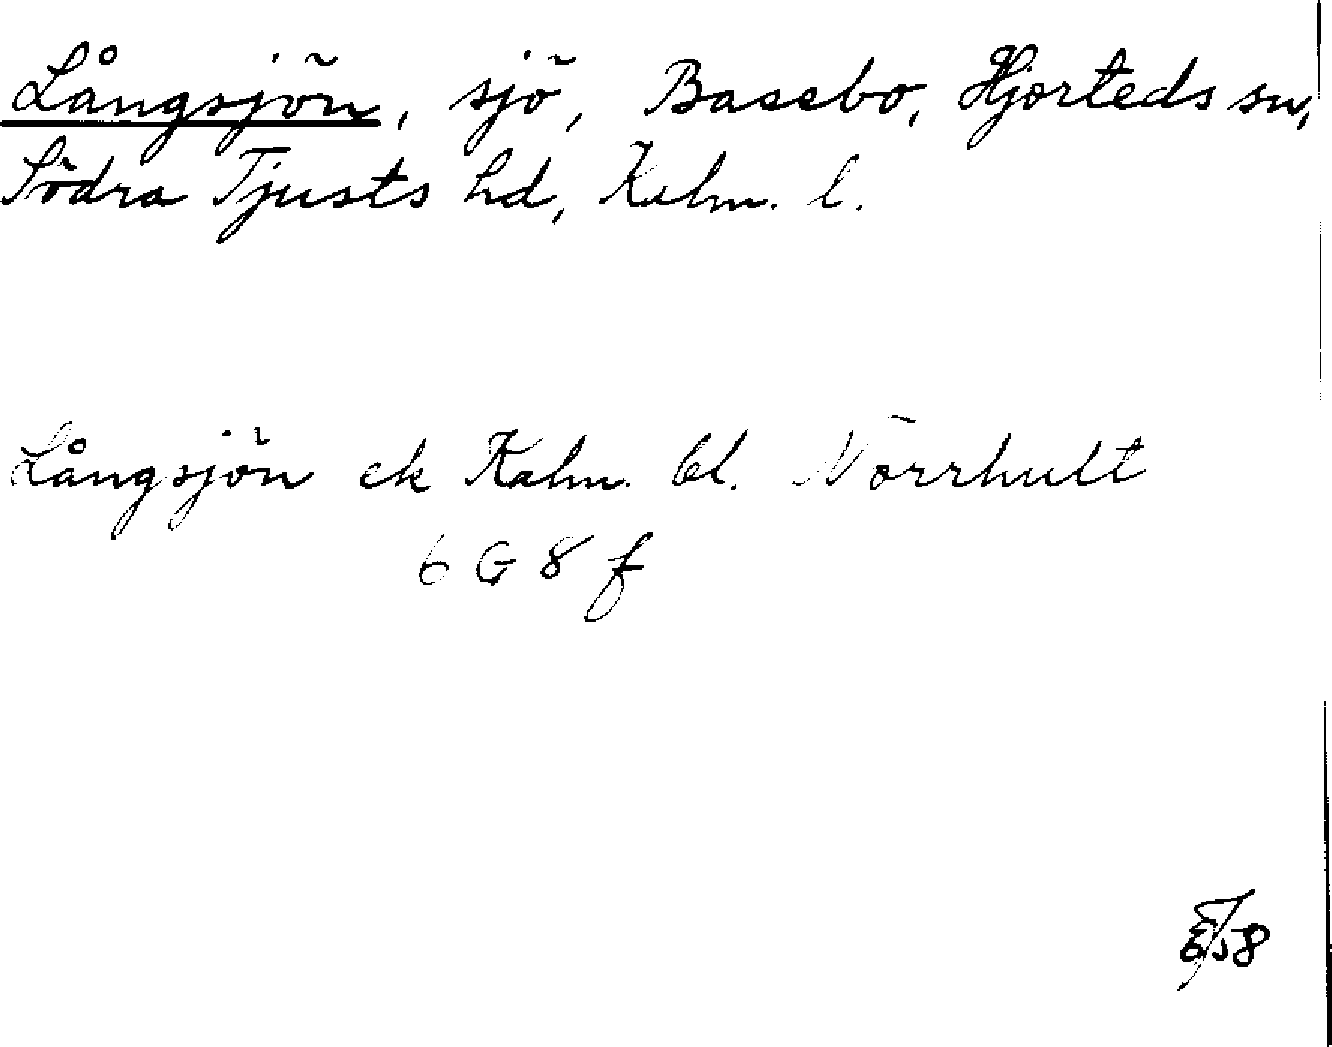 Långsjön, sjö, Basebo, Hjorteds sn,
Södra Tjusts hd, Kalm. l.
Långsjön ek Kalm. bl. Norrhult
6 G 8 f